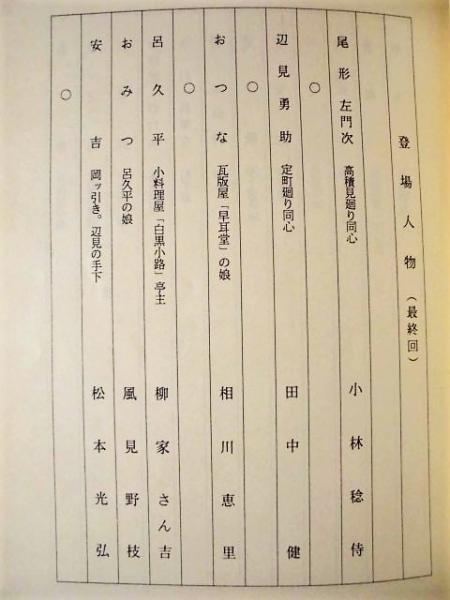 登場人物（最終回）
尾形左門次 高積見廻り同心 小林稔侍
○
辺見勇助 定町廻り同心 田中健
○
おつな 瓦版屋「早耳堂」の娘 相川恵里
○
呂久平 小料理屋「白黒小路」亭主 柳家さん吉
おみつ 呂久平の娘 風見野枝
安吉 岡ッ引き。辺見の手下 松本光弘
○